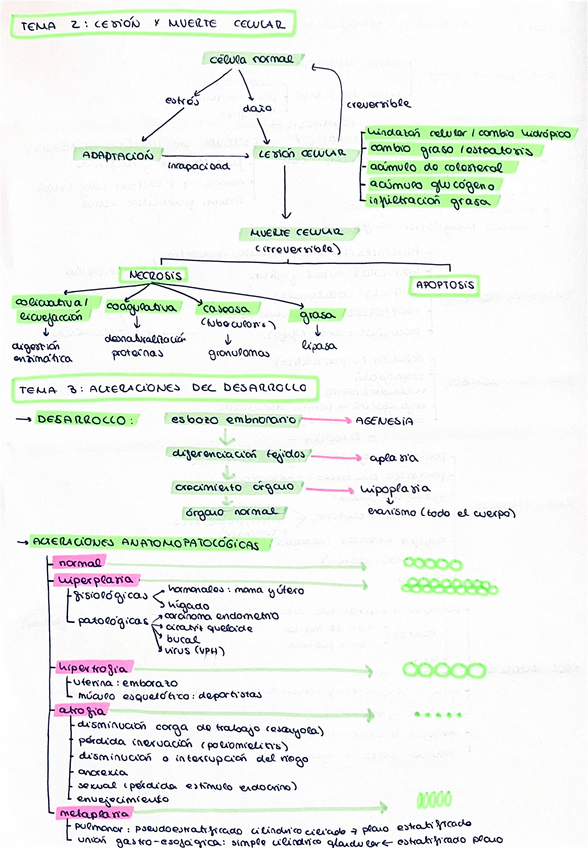 TEMA 2: LESIÓN Y MUERTE CELULAR
célula normal
estrés
daño
irreversible
ADAPTACIÓN
incapacidad
LESIÓN CELULAR
hinchazón celular / cambio hidrópico
cambio graso / esteatosis
acúmulo de colesterol
acúmulo glucógeno
infiltración grasa
MUERTE CELULAR
(irreversible)
NECROSIS
APOPTOSIS
colicuativa /
licuefacción
coagulativa
caseosa
(tuberculosis)
grasa
digestión
enzimática
desnaturalización
proteínas
granulomas
lipasa
TEMA 3: ALTERACIONES DEL DESARROLLO
→ DESARROLLO: esbozo embrionario → AGENESIA
diferenciación tejidos → aplasia
crecimiento órgano → hipoplasia
órgano normal
enanismo (todo el cuerpo)
→ ALTERACIONES ANATOMOPATOLÓGICAS
normal
hiperplasia
fisiológicas
hormonales: mama y útero
hígado
patológicas
carcinoma endometrio
cicatriz queloide
bucal
virus (VPH)
hipertrofia
uterina: embarazo
músculo esquelético: deportistas
atrofia
disminución carga de trabajo (escayola)
pérdida inervación (poliomielitis)
disminución o interrupción del riego
anorexia
sexual (pérdida estímulo endocrino)
envejecimiento
metaplasia
pulmonar: pseudoestratificado cilíndrico ciliado → plano estratificado
unión gastro-esofágica: simple cilíndrico glandular ← estratificado plano